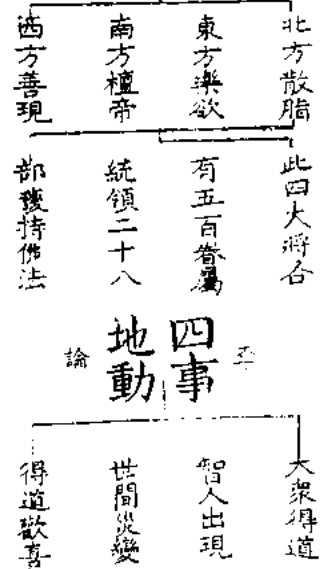 北方散脂
東方樂欲
南方檀帝
西方善現
此四大將各
有五百眷屬
統領二十八
部護持佛法
四事
地動
論
大衆得道
智人出現
世間災變
得道歡喜